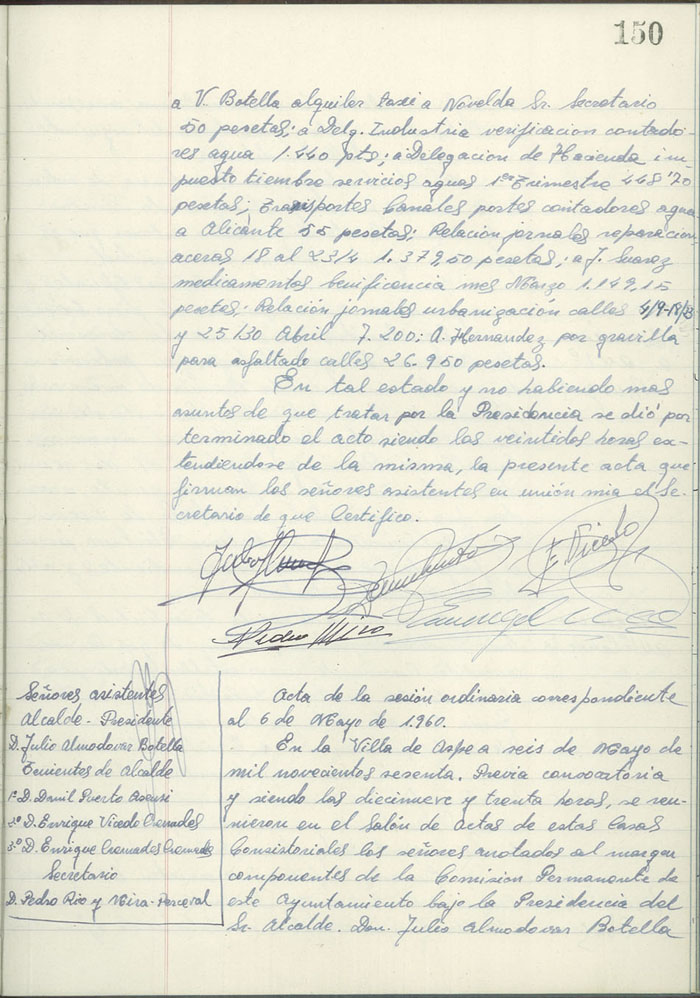 150
a V. Botella alquiler taxi a Novelda Sr. Secretario
50 pesetas; a Delg. Industria verificacion contado-
res agua 1.440 pts; a Delegacion de Hacienda im-
puesto timbre servicios aguas 1er Trimestre 448'70
pesetas; Transportes Canales portes contadores agua
a Alicante 55 pesetas; Relacion jornales reparacion
aceras 18 al 23/4 1.379,50 pesetas; a J. Suarez
medicamentos benificencia mes Marzo 1.149,15
pesetas; Relación jornales urbanización calles
y 25/30 Abril 7.200; A. Hernandez por gravilla
para asfaltado calles 26.950 pesetas.
En tal estado y no habiendo mas
asuntos de que tratar por la Presidencia se dió por
terminado el acto siendo las veintidos horas ex-
tendiendose de la misma, la presente acta que
firman los señores asistentes en unión mia el Se-
cretario de que Certifico.
E. Vicedo
Pedro Mira
Señores asistentes
Alcalde-Presidente
D. Julio Almodovar Botella
Tenientes de Alcalde
1º D. Danil Puerto Asensi
2º D. Enrique Vicedo Cremades
3º D. Enrique Cremades Cremades
Secretario
D. Pedro Rio y Mira-Perceval
Acta de la sesión ordinaria correspondiente
al 6 de Mayo de 1.960.
En la Villa de Aspe a seis de Mayo de
mil novecientos sesenta. Previa convocatoria
y siendo las diecinueve y treinta horas, se reu-
nieron en el Salón de Actas de estas Casas
Consistoriales los señores anotados al margen
componentes de la Comision Permanente de
este Ayuntamiento bajo la Presidencia del
Sr. Alcalde. Don Julio Almodovar Botella